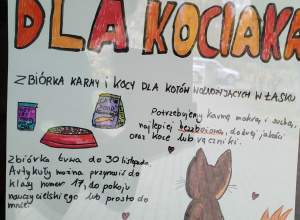 DLA KOCIAKA
ZBIÓRKA KARMY I KOCY DLA KOTÓW WOLNOŻYJĄCYCH W ŁASKU
Potrzebujemy karmę mokrą i suchą,
najlepiej bezzbożową, dobrej jakości
oraz koce lub ręczniki.
Zbiórka trwa do 30 listopada.
Artykuły można przynosić do
klasy numer 17, do pokoju
nauczycielskiego lub prosto do
mnie.